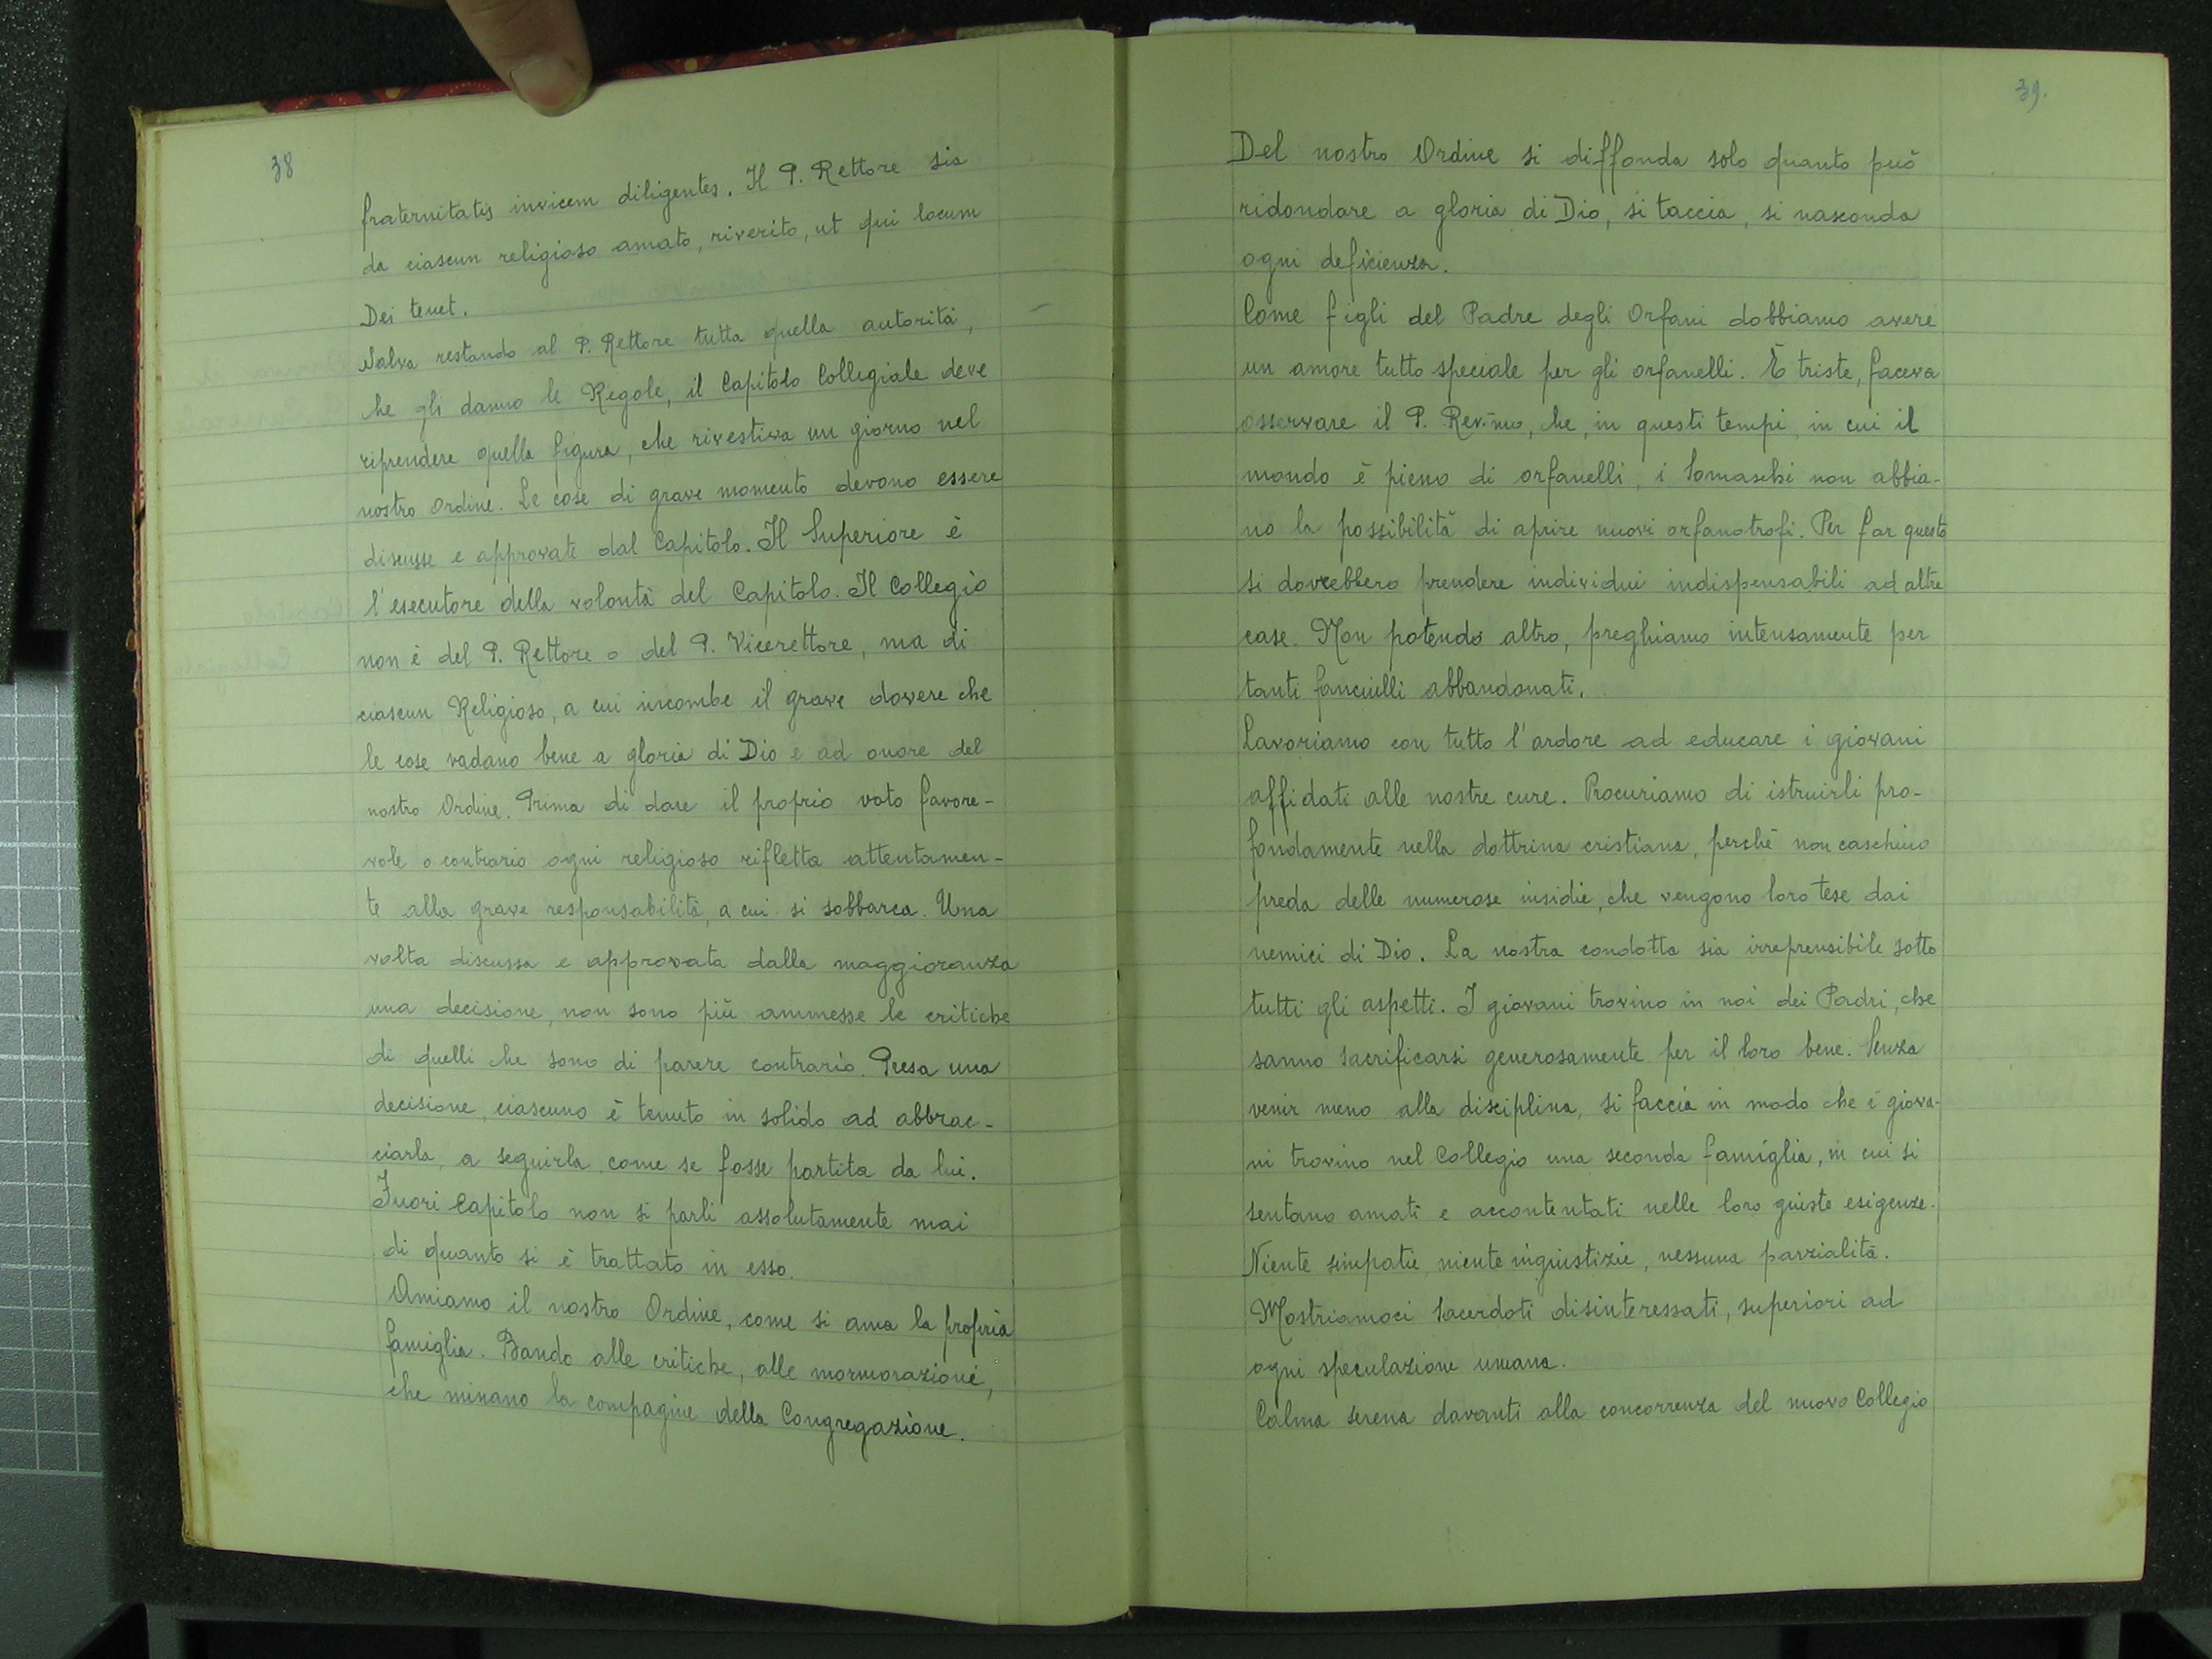 38
fraternitatis invicem diligentes. Il P. Rettore sia
da ciascun religioso amato, riverito, ut qui locum
Dei tenet.
Salva restando al P. Rettore tutta quella autorità,
che gli danno le Regole, il Capitolo Collegiale deve
riprendere quella figura, che rivestiva un giorno nel
nostro Ordine. Le cose di grave momento devono essere
discusse e approvate dal Capitolo. Il Superiore è
l'esecutore della volontà del Capitolo. Il Collegio
non è del P. Rettore o del P. Vicerettore, ma di
ciascun Religioso, a cui incombe il grave dovere che
le cose vadano bene a gloria di Dio e ad onore del
nostro Ordine. Prima di dare il proprio voto favore-
vole o contrario ogni religioso rifletta attentamen-
te alla grave responsabilità, a cui si sobbarca. Una
volta discussa e approvata dalla maggioranza
una decisione, non sono più ammesse le critiche
di quelli che sono di parere contrario. Presa una
decisione, ciascuno è tenuto in solido ad abbrac-
ciarla, a seguirla, come se fosse partita da lui.
Fuori Capitolo non si parli assolutamente mai
di quanto si è trattato in esso.
Amiamo il nostro Ordine, come si ama la propria
famiglia. Bando alle critiche, alle mormorazioni,
che minano la compagine della Congregazione.
39.
Del nostro Ordine si diffonda solo quanto può
ridondare a gloria di Dio, si taccia, si nasconda
ogni deficienza.
Come figli del Padre degli Orfani dobbiamo avere
un amore tutto speciale per gli orfanelli. È triste, faceva
osservare il P. Rev.mo, che, in questi tempi, in cui il
mondo è pieno di orfanelli, i Somaschi non abbia-
no la possibilità di aprire nuovi orfanotrofi. Per far questo
si dovrebbero prendere individui indispensabili ad altre
case. Non potendo altro, preghiamo intensamente per
tanti fanciulli abbandonati.
Lavoriamo con tutto l'ardore ad educare i giovani
affidati alle nostre cure. Procuriamo di istruirli pro-
fondamente nella dottrina cristiana, perchè non caschino
preda delle numerose insidie, che vengono loro tese dai
nemici di Dio. La nostra condotta sia irreprensibile sotto
tutti gli aspetti. I giovani trovino in noi dei Padri, che
sanno sacrificarsi generosamente per il loro bene. Senza
venir meno alla disciplina, si faccia in modo che i giova-
ni trovino nel Collegio una seconda famiglia, in cui si
sentano amati e accontentati nelle loro giuste esigenze.
Niente simpatie, niente ingiustizie, nessuna parzialità.
Mostriamoci Sacerdoti disinteressati, superiori ad
ogni speculazione umana.
Calma serena davanti alla concorrenza del nuovo Collegio